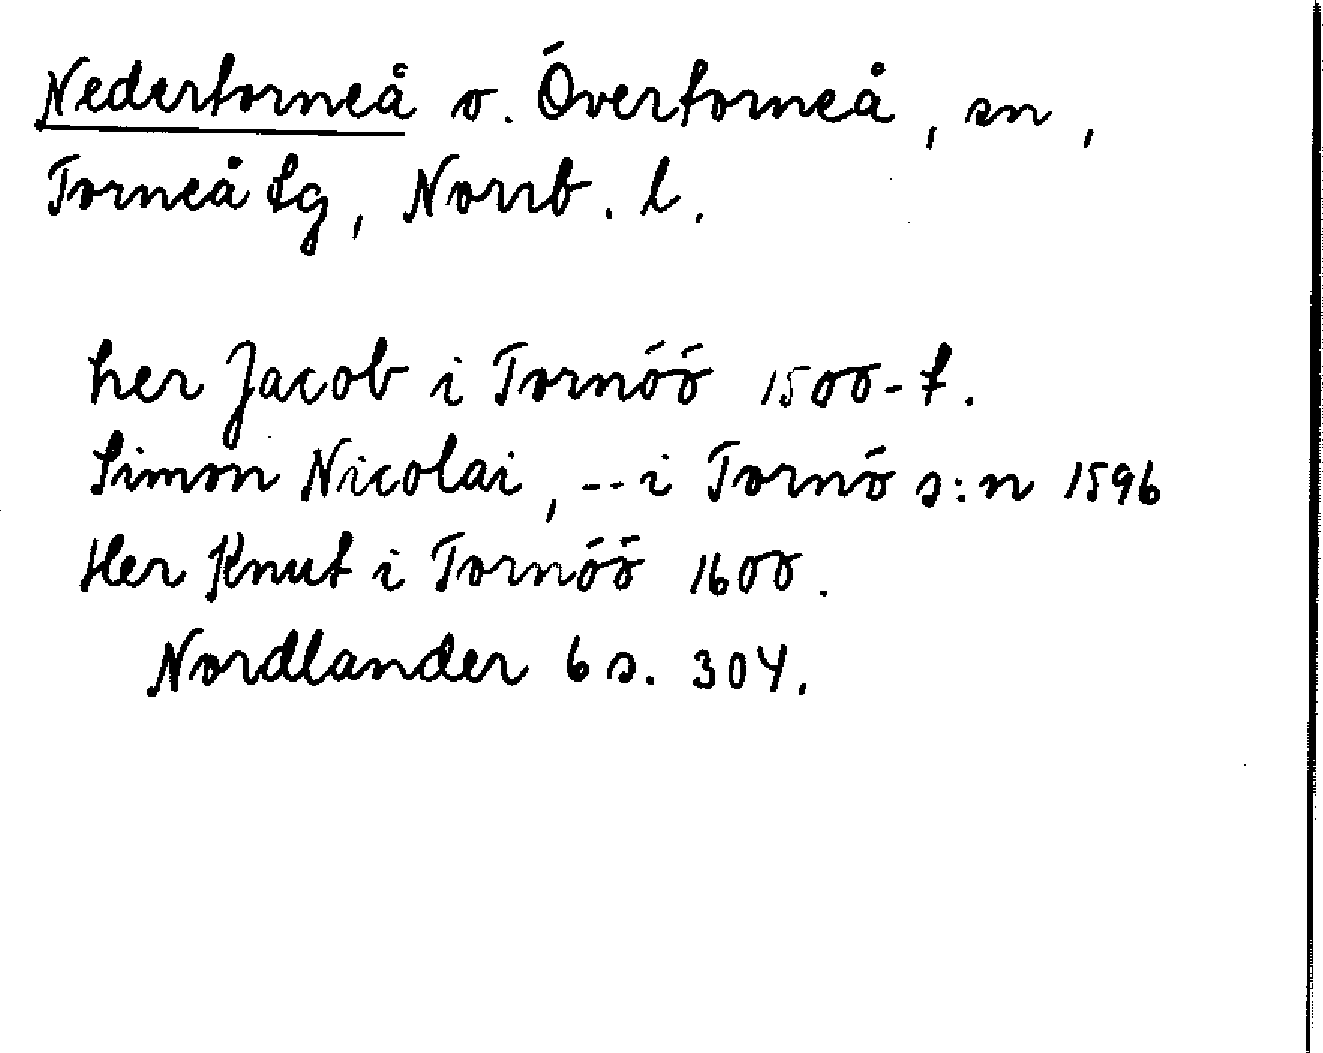 Nedertorneå o. Övertorneå, sn,
Torneå tg, Norrb. l.
her Jacob i Tornöö 1500-t.
Simon Nicolai, -- i Tornö s:n 1596
Her Knut i Tornöö 1600.
Nordlander 6 s. 304.